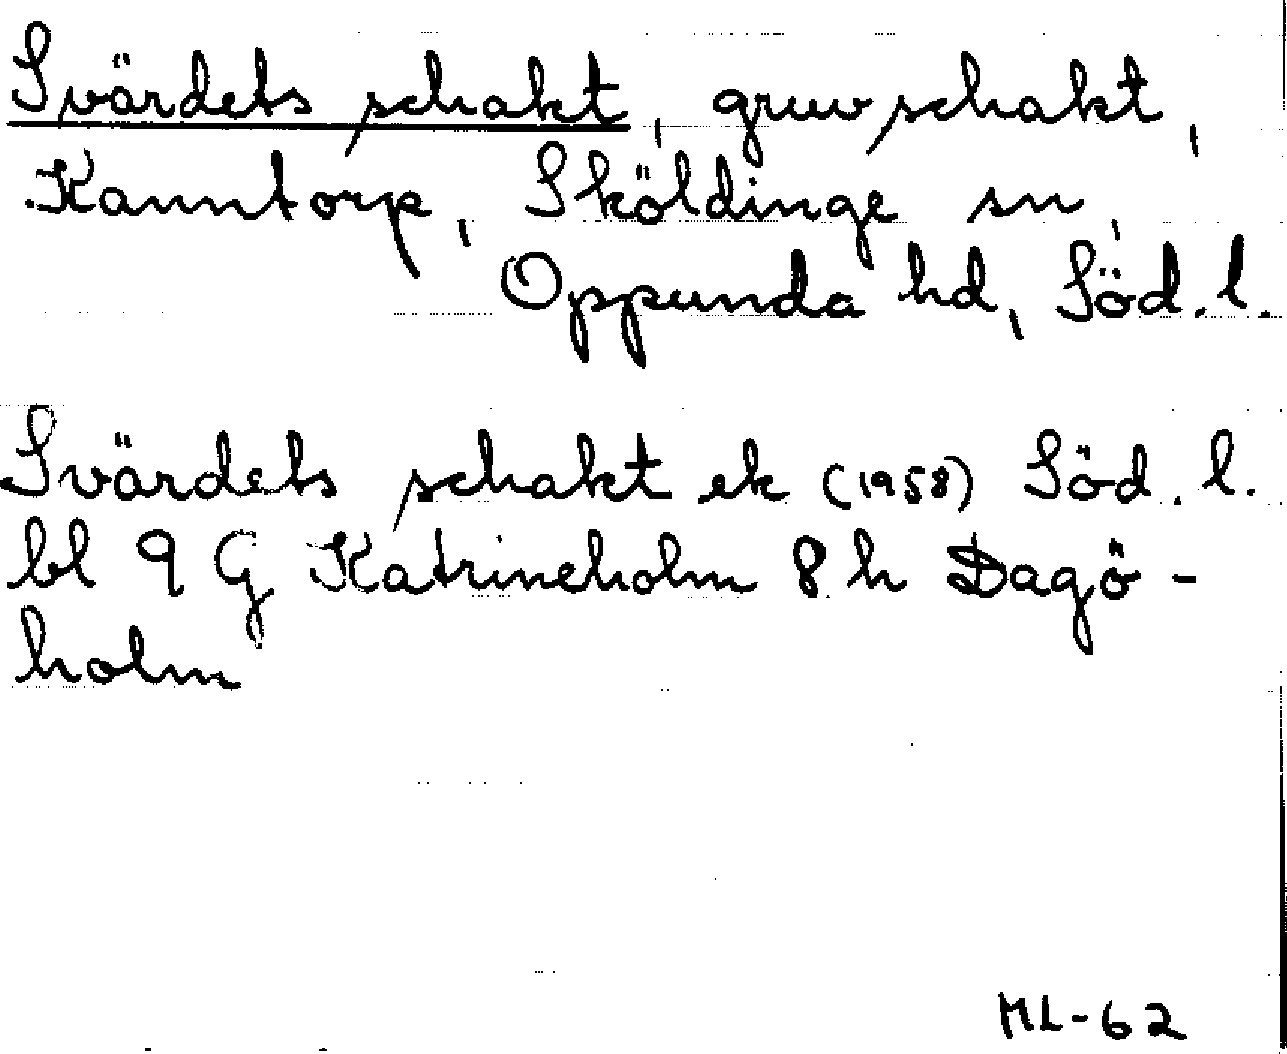 Svärdets schakt, gruvschakt,
Kanntorp, Sköldinge sn,
Oppunda hd, Söd. l.
Svärdets schakt ek (1958) Söd. l.
bl 9 G Katrineholm 8 h Dagö-
holm
ML-62